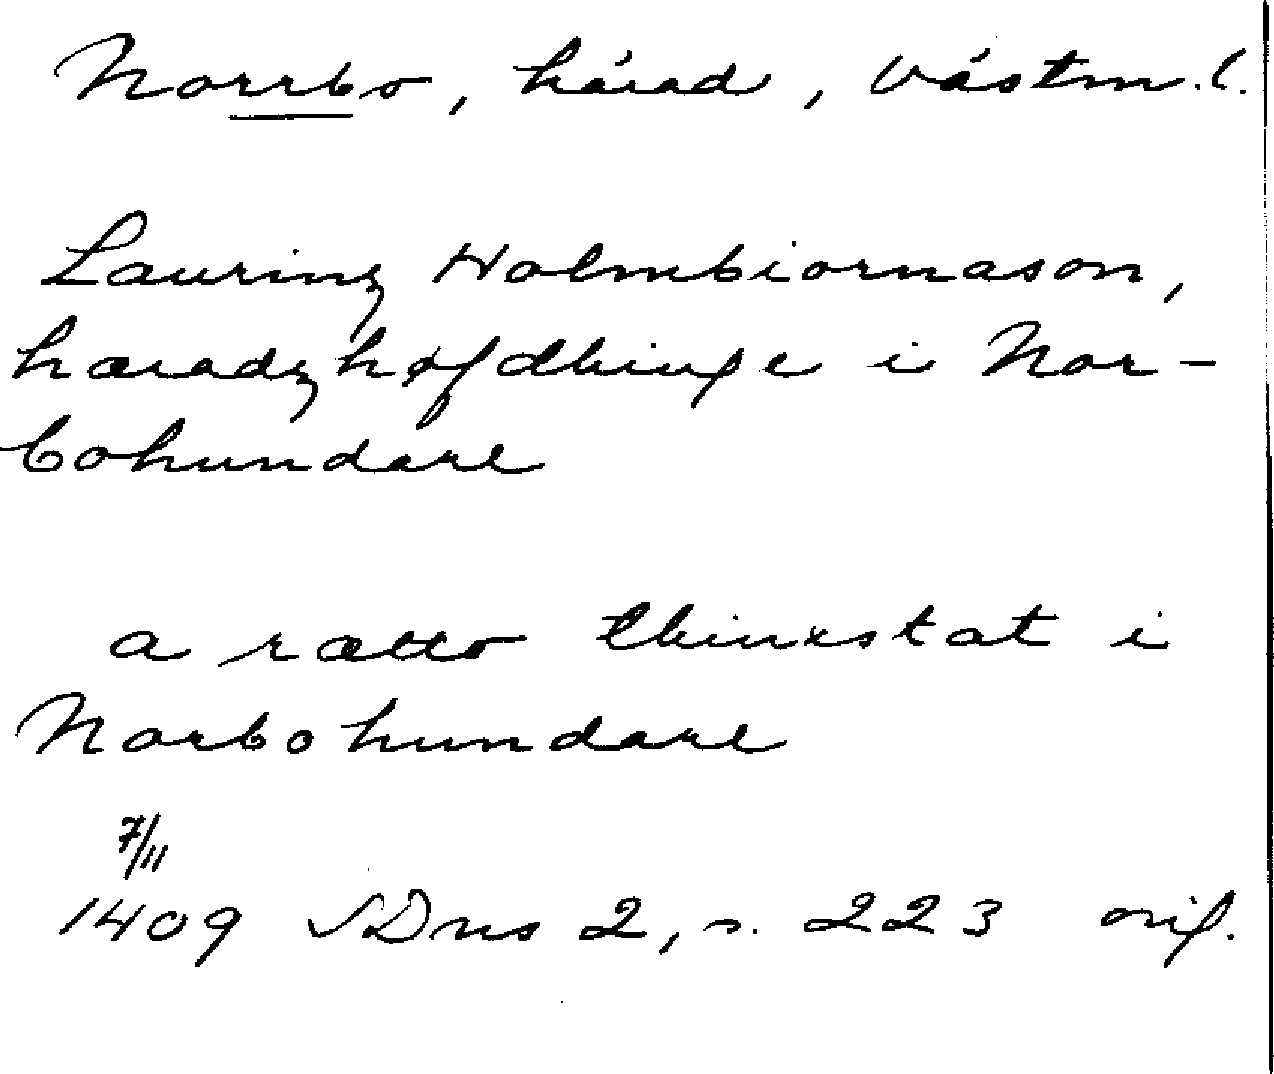 Norrbo, härad, Västm.l.
Laurinz Holmbiornason,
hæradzhøfdhinge i Nor-
bohundare
a rætto thinxstat i
Norbohundare
7/11
1409 SDns 2, s. 223 orig.